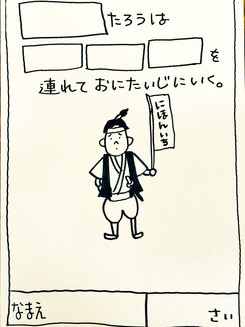 たろうは
を
連れて おにたいじにいく。
にほんいち
なまえ
さい